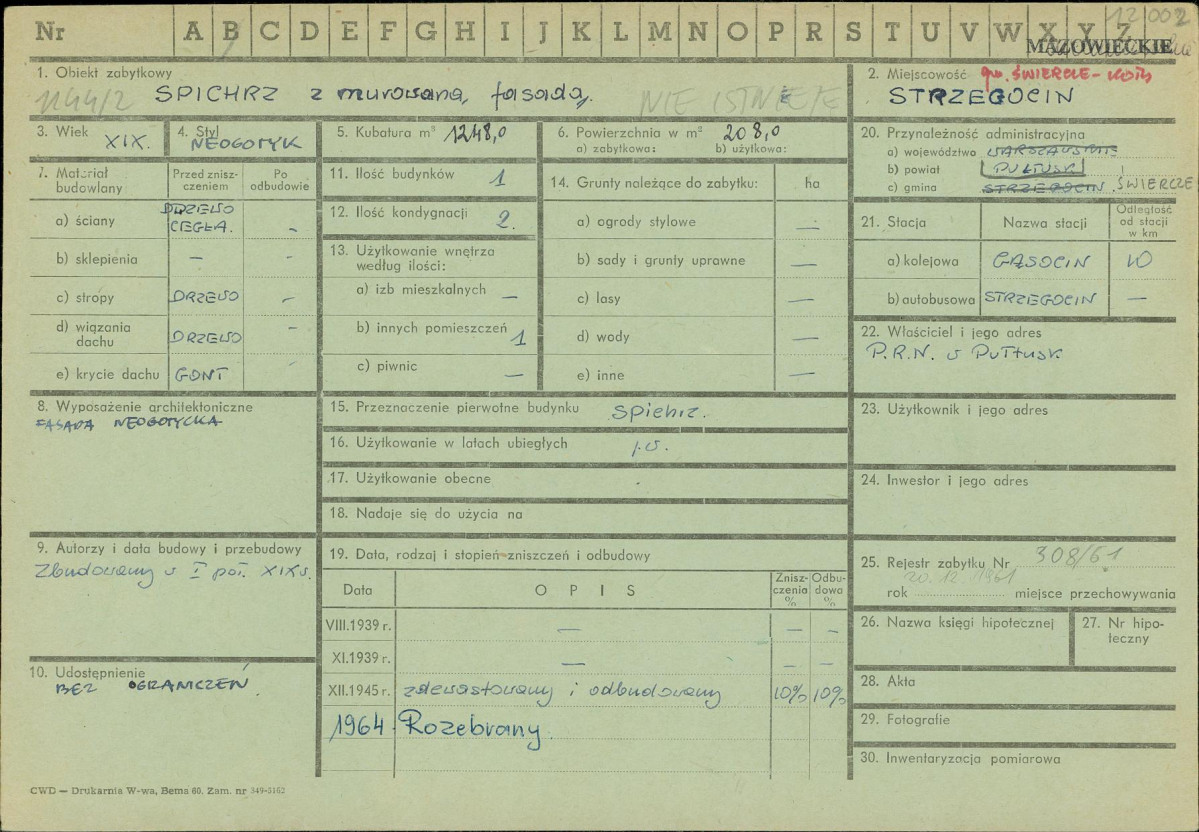 Nr A B C D E F G H I J K L M N O P R S T U V W X Y Z
12002
MAZOWIECKIE
1. Obiekt zabytkowy
1144/2 SPICHRZ z murowaną fasadą. NIE ISTNIEJE
2. Miejscowość gm. ŚWIERCZE-
STRZEGOCIN
3. Wiek XIX.
4. Styl NEOGOTYK
5. Kubatura m³ 1248,0
6. Powierzchnia w m² 208,0
a) zabytkowa: b) użytkowa:
7. Materiał budowlany
Przed zniszczeniem
Po odbudowie
a) ściany DRZEWO CEGŁA. -
b) sklepienia - -
c) stropy DRZEWO -
d) wiązania dachu DRZEWO -
e) krycie dachu GONT
8. Wyposażenie architektoniczne
FASADA NEOGOTYCKA
9. Autorzy i data budowy i przebudowy
Zbudowany w I poł. XIX w.
10. Udostępnienie
BEZ OGRANICZEŃ.
11. Ilość budynków 1
12. Ilość kondygnacji 2.
13. Użytkowanie wnętrza
według ilości:
a) izb mieszkalnych —
b) innych pomieszczeń 1
c) piwnic —
14. Grunty należące do zabytku: ha
a) ogrody stylowe —
b) sady i grunty uprawne —
c) lasy —
d) wody —
e) inne —
15. Przeznaczenie pierwotne budynku Spichrz.
16. Użytkowanie w latach ubiegłych j.w.
17. Użytkowanie obecne
18. Nadaje się do użycia na
19. Data, rodzaj i stopień zniszczeń i odbudowy
Data OPIS Zniszczenia % Odbudowa %
VIII.1939 r. — — —
XI.1939 r. — — —
XII.1945 r. zdewastowany i odbudowany 10% 10%
1964 Rozebrany.
20. Przynależność administracyjna
a) województwo WARSZAWSKIE
b) powiat PUŁTUSK
c) gmina STRZEGOCIN, ŚWIERCZE
21. Stacja Nazwa stacji Odległość od stacji w km
a) kolejowa GĄSOCIN 10
b) autobusowa STRZEGOCIN —
22. Właściciel i jego adres
P.R.N. w Pułtusk
23. Użytkownik i jego adres
24. Inwestor i jego adres
25. Rejestr zabytku Nr 308/61
20.12.1961
rok miejsce przechowywania
26. Nazwa księgi hipotecznej
27. Nr hipoteczny
28. Akta
29. Fotografie
30. Inwentaryzacja pomiarowa
CWD — Drukarnia W-wa, Bema 60. Zam. nr 349-5162